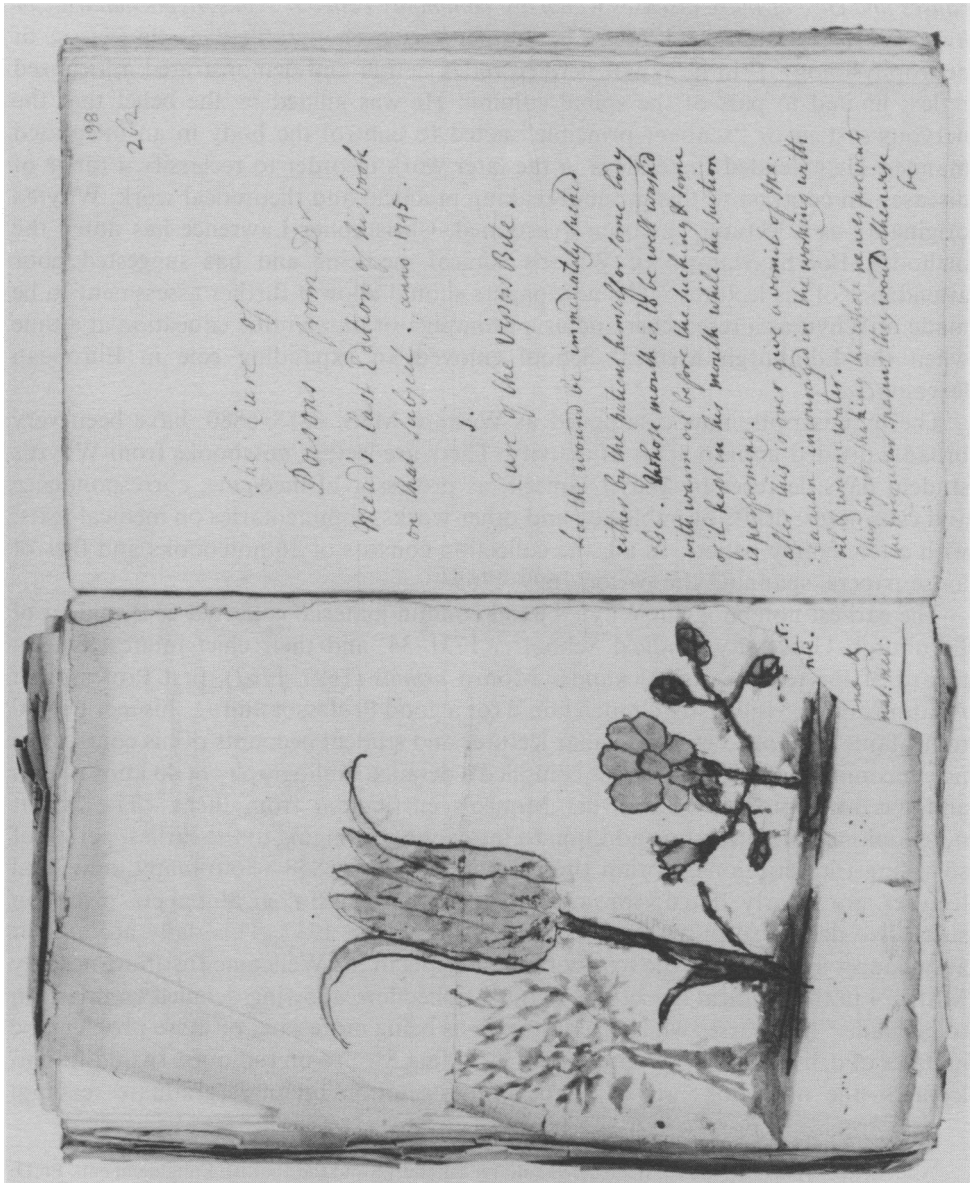 198
262
The cure of
Poisons from Dr
Mead and Duncan's book
on that subject 1745
1.
Cure of the Vipers Bite
Let the wound be immediatly sucked
either by the patient himself or some body
else. Whose mouth is to be well washed
with warm oil before the thing is done
& is kept in her mouth while the suction
is performing.
after this is over give a vomit of Ippe-
:cacuan encouraged in the working with
oil & warm water.
The bystanders sucking the viper prevent
the poison because they would otherwise
be
nte.
Lond &